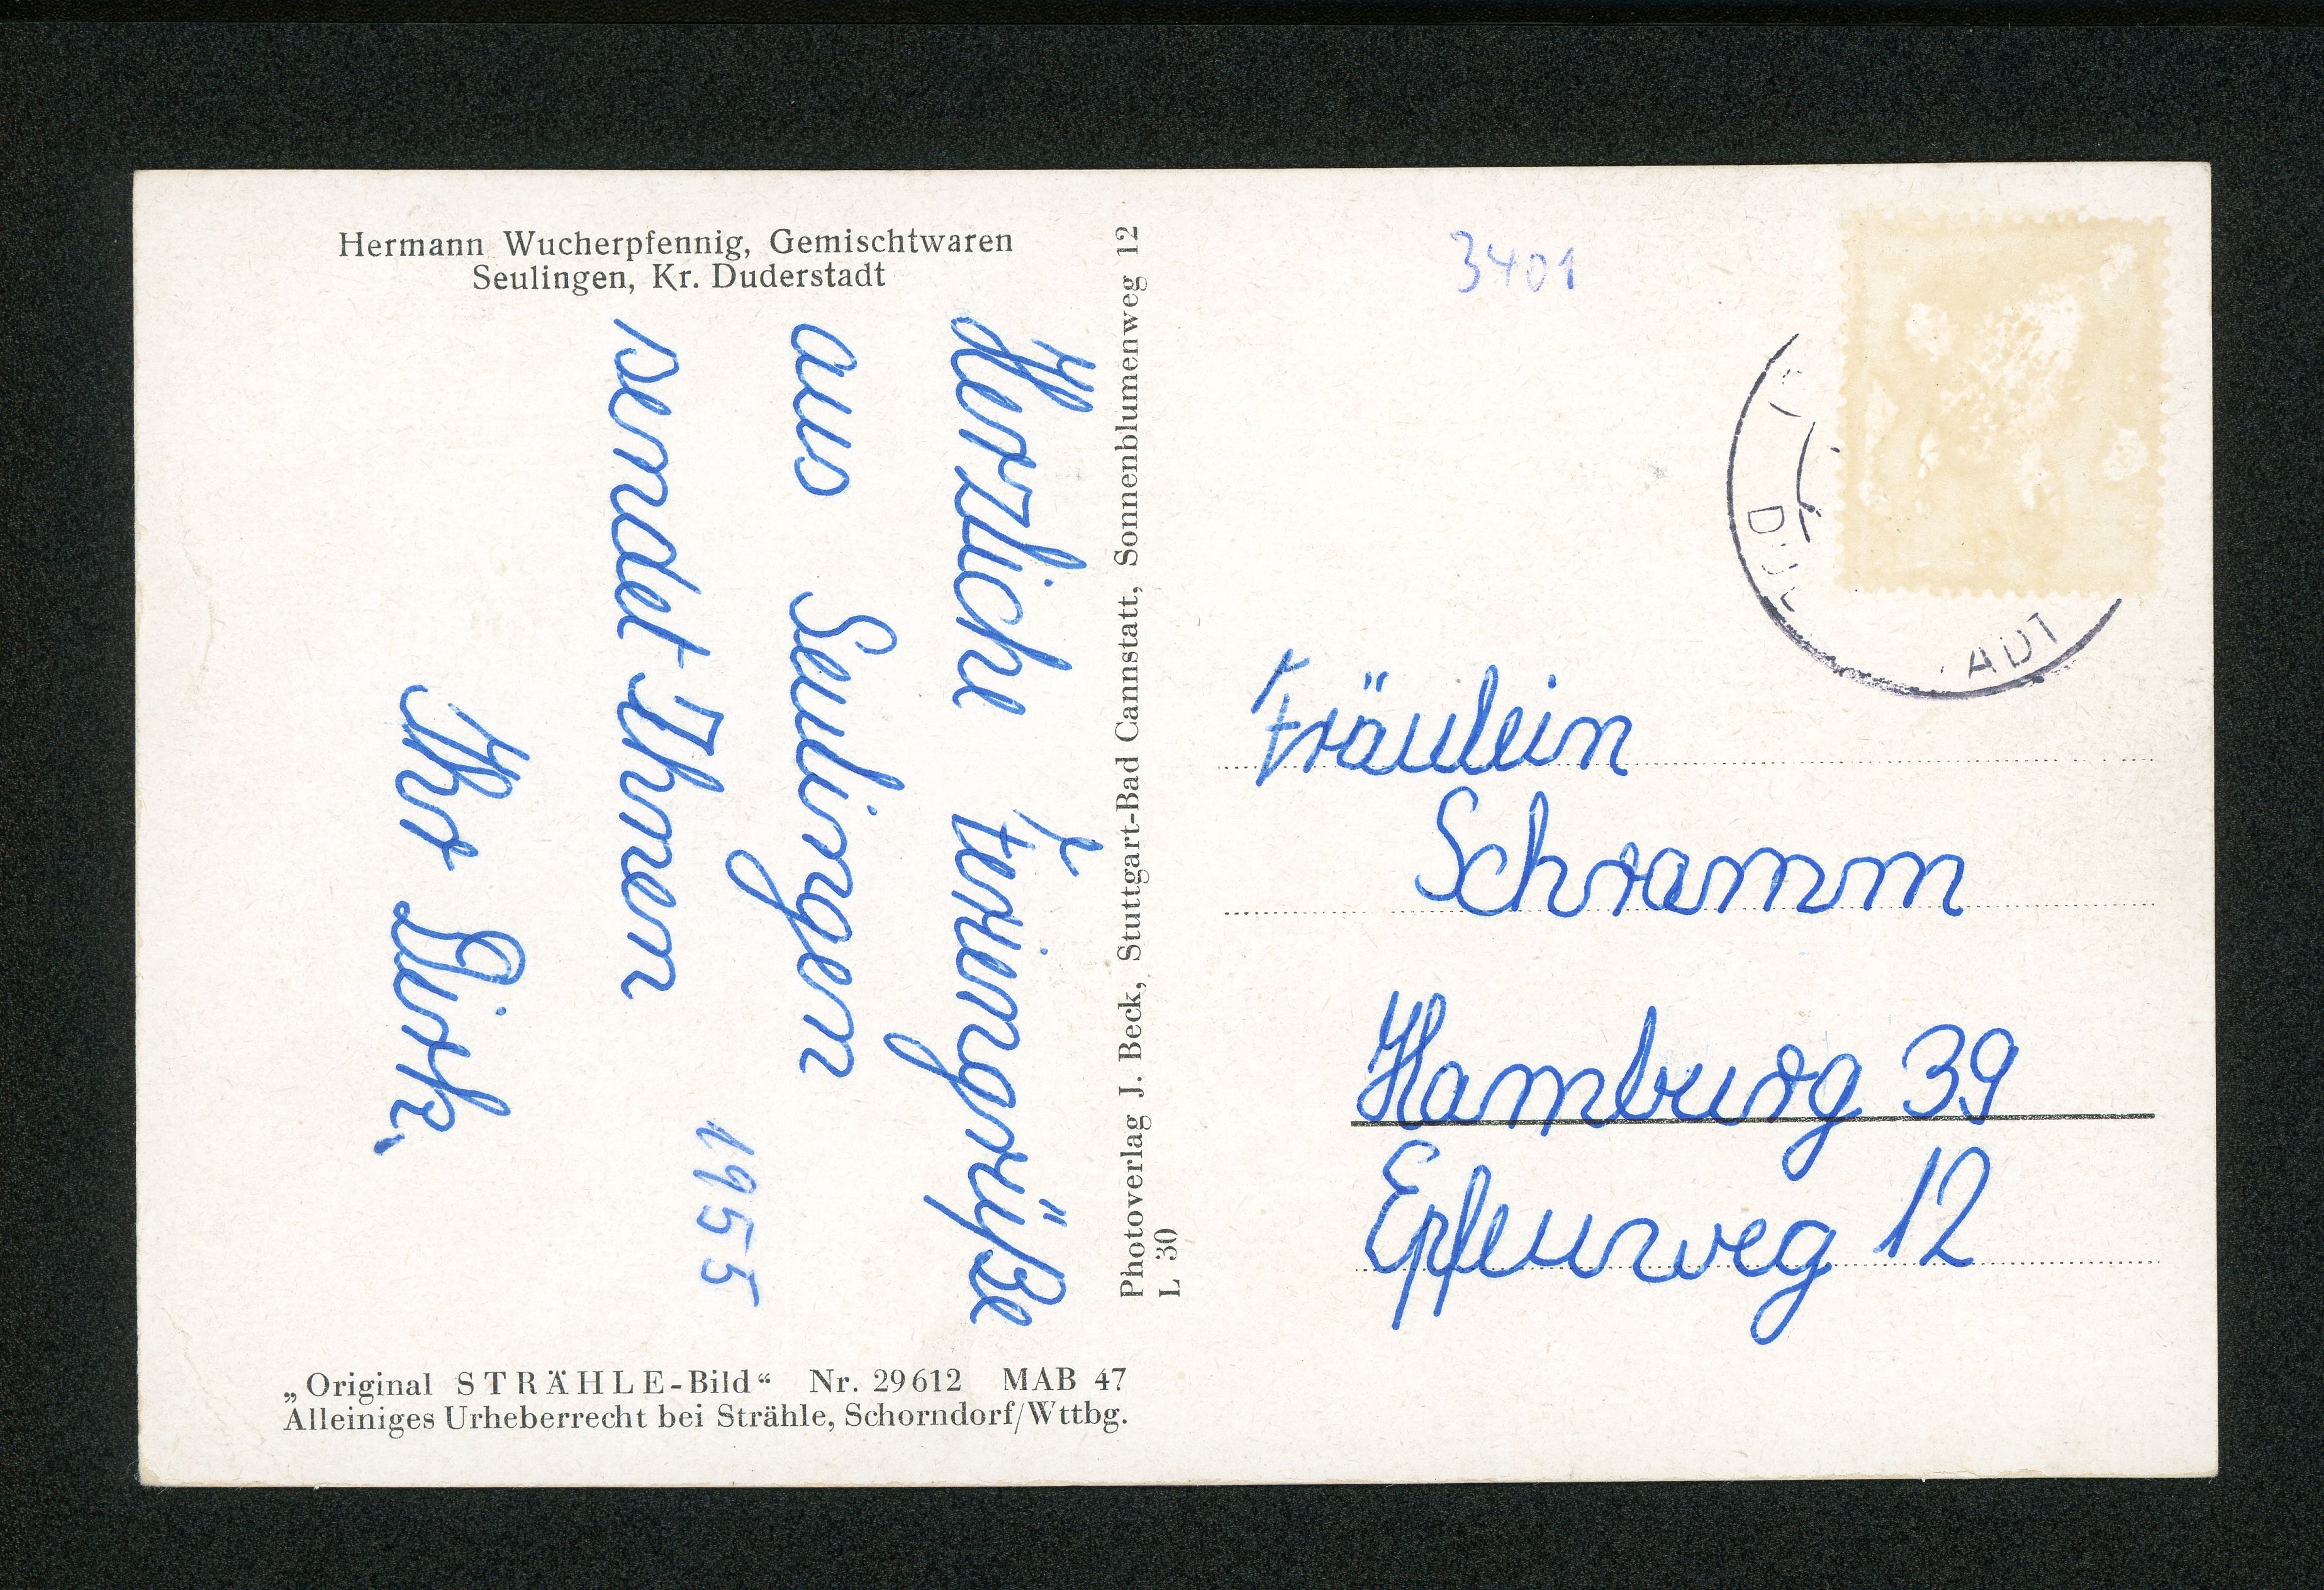 Hermann Wucherpfennig, Gemischtwaren
Seulingen, Kr. Duderstadt
Herzliche Feriengrüße
aus Seulingen
sendet Ihnen
Ihr Dirk.
1955
„Original STRÄHLE-Bild“ Nr. 29612 MAB 47
Alleiniges Urheberrecht bei Strähle, Schorndorf/Wttbg.
Photoverlag J. Beck, Stuttgart-Bad Cannstatt, Sonnenblumenweg 12
L 30
3401
Fräulein
Schramm
Hamburg 39
Epfenweg 12